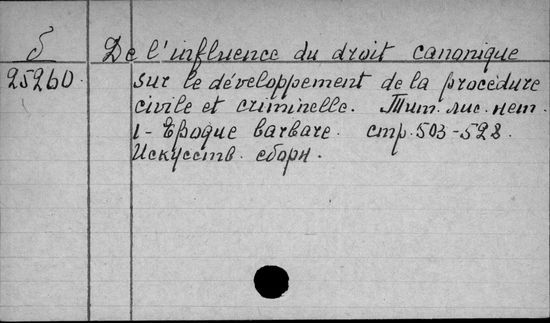 б De l'influence du droit canonique
25260. sur le développement de la procédure
civile et criminelle. Тит. лис. нет.
1 - Epoque barbare. стр. 503-528.
Искусств. сборн.